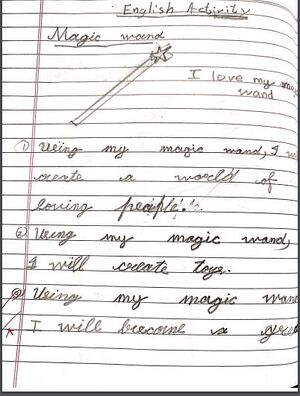 English Activity
Magic wand
I love my magic
wand
1) Using my magic wand, I
create a world of
loving people.
2) Using my magic wand,
I will create toys.
3) Using my magic wand
I will become a